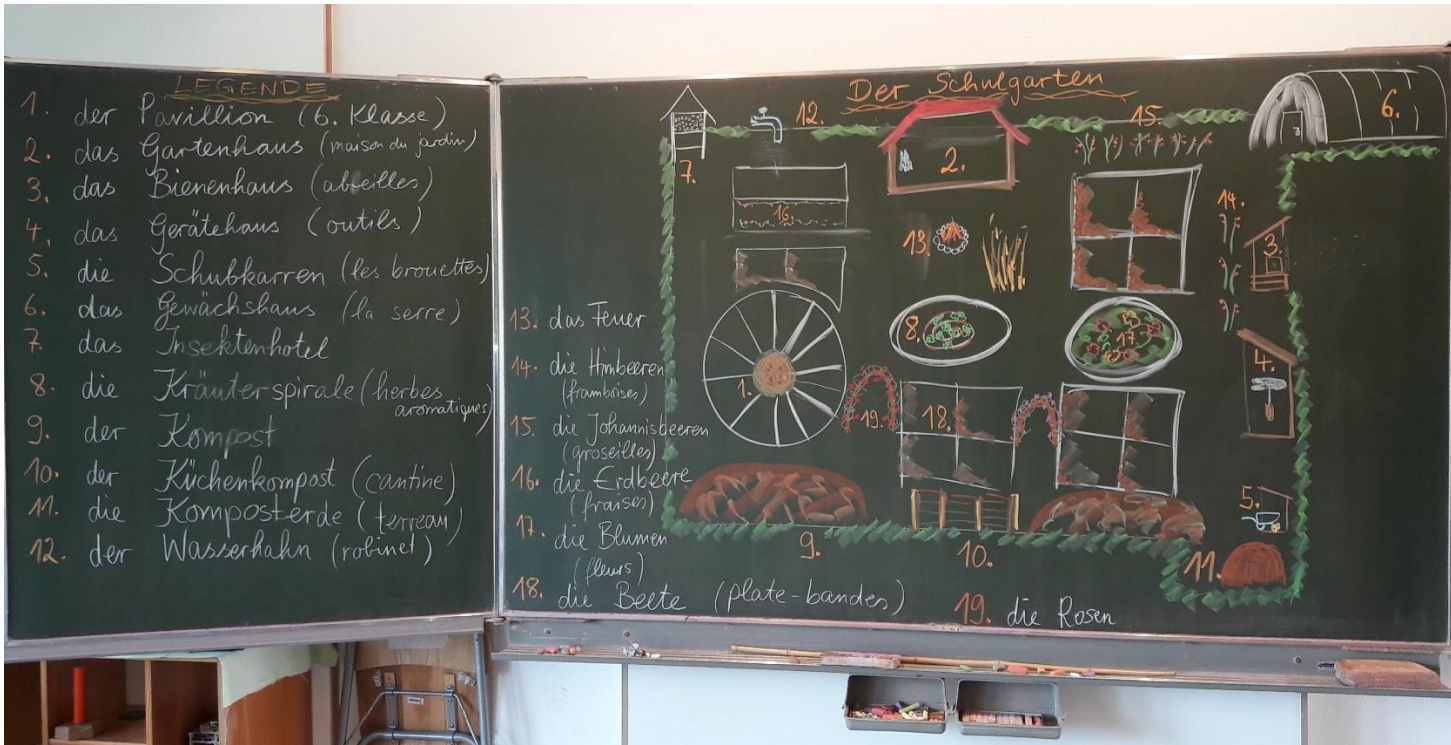 LEGENDE
1. der Pavillion (6. Klasse)
2. das Gartenhaus (maison du jardin)
3. das Bienenhaus (abeilles)
4. das Gerätehaus (outils)
5. die Schubkarren (les brouettes)
6. das Gewächshaus (la serre)
7. das Insektenhotel
8. die Kräuterspirale (herbes
aromatiques)
9. der Kompost
10. der Küchenkompost (cantine)
11. die Komposterde (terreau)
12. der Wasserhahn (robinet)
13. das Feuer
14. die Himbeeren
(framboises)
15. die Johannisbeeren
(groseilles)
16. die Erdbeere
(fraises)
17. die Blumen
(fleurs)
18. die Beete (plate-bandes)
19. die Rosen
Der Schulgarten
12.
15.
6.
7.
2.
16.
14.
13.
3.
8.
17.
1.
4.
19.
18.
5.
9.
10.
11.